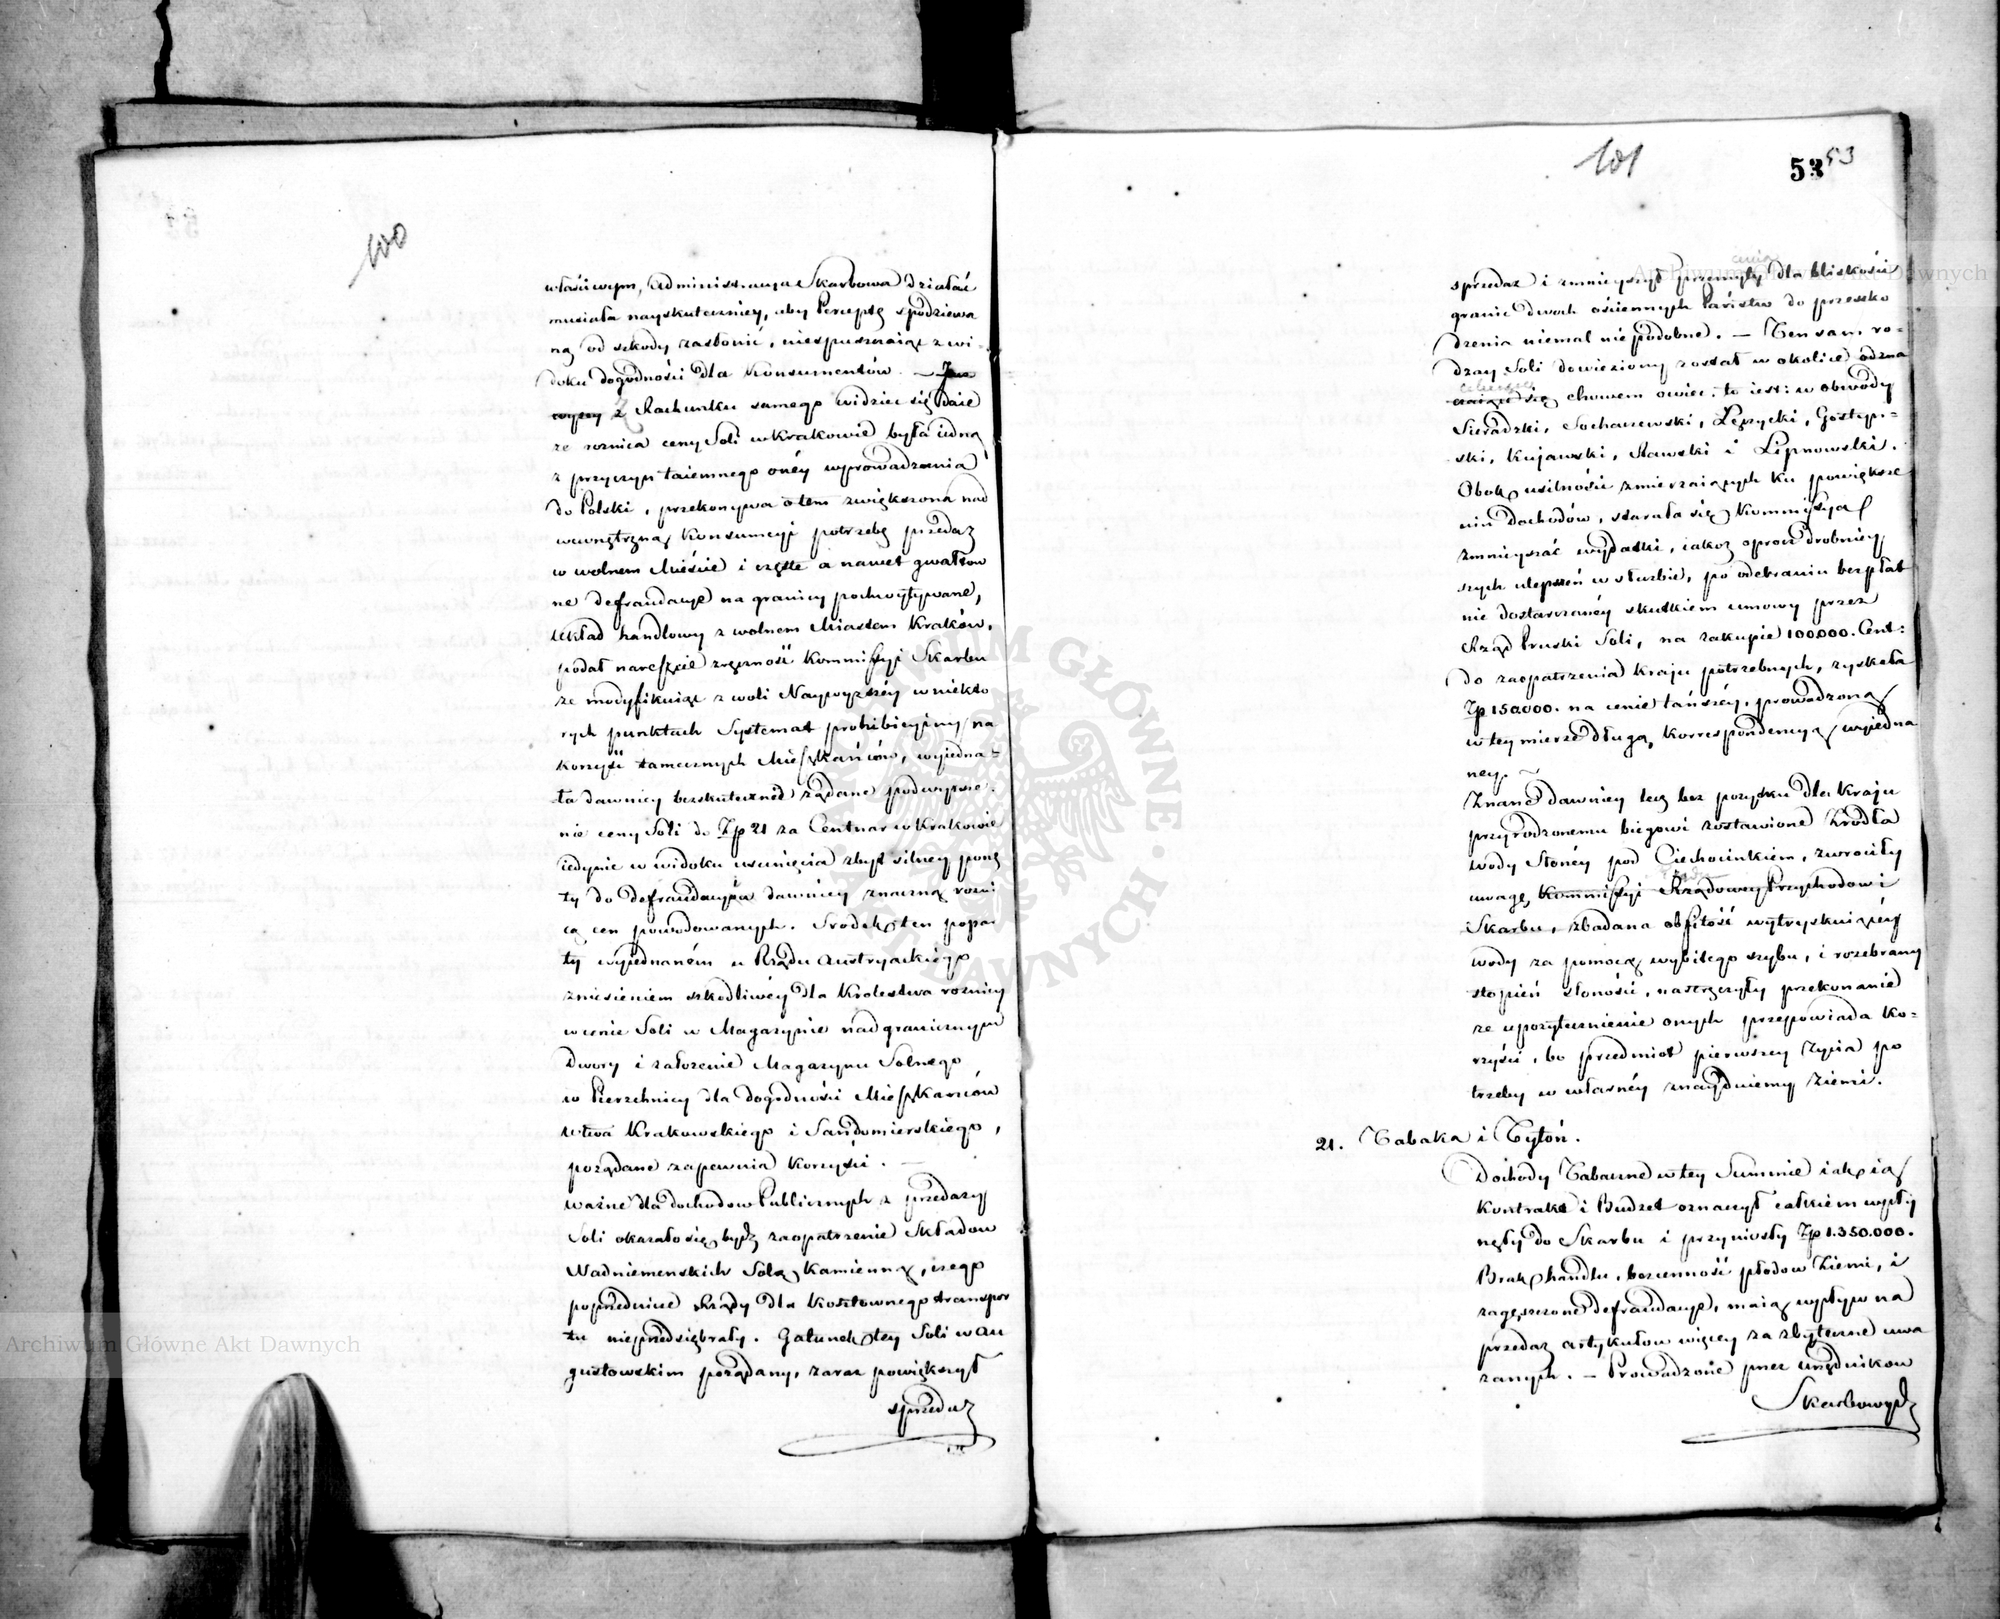 100
właściwym, Administracya Skarbowa działać
musiała nayskuteczniey, aby Perceptę spodziewa
ną od szkody zasłonić, niespuszczaiąc z wi-
doku dogodności dla Konsumentów. —
z Rachunku samego widzieć się daie
że roznica ceny Soli w Krakowie była iedną
z przyczyn taiemnego onéy wprowadzania
do Polski, przekonywa o tem zwiększona nad
wewnętrzną Konsumcyi potrzebę przedaż
w wolnem Mieście i częste a nawet gwałtow
ne defraudacye na granicy pochwytywane,
Układ handlowy z wolnem Miastem Kraków,
podał nareszcie zręczność Kommissyi Skarbu
że modyfikuiąc z woli Naywyższéy w niektó
rych punktach Systemat prohibicyiny na
korzyść tamecznych Mieszkańców, wyiedna-
ła dawniey bezskutecznie żądane podwyższe-
nie ceny Soli do Zp 21 za Centnar w Krakowie
iedynie w widoku usunięcia zbyt silney ponę
ty do defraudacyi dawniey znaczną rożni
cą cen powodowanych. Srodek ten popar
ty wyiednaném u Rządu Austryackiego
zniesieniem szkodliwéy dla Krolestwa roznicy
w cenie Soli w Magazynie nadgranicznym
Dwory i założenie Magazynu Solnego
w Pierzchnicy dla dogodności Mieszkańców
Wtwa Krakowskiego i Sandomierskiego,
pożądane zapewnia korzyści. —
ważne dla dochodow Publicznych z przedaży
Soli okazało się bydź zaopatrzenie Składow
Nadniemenskich Solą Kamienną, czego
poprzednicze Rządy dla kosztownego transpor
tu nieprzedsiębrały. Gatunek tey Soli w Au
gustowskim pożądany, zaraz powiększył
sprzedaż
101
53 53
sprzedaz i zmnieyszył przemyty dla bliskości
granic dwoch ościennych Państw do przeszko
dzenia niemal niepodobne. — Ten sam ro-
dzay Soli dowieziony został w okolice odzna
się chowem owiec, to iest: w obwody
Sieradzki, Sochaczewski, Łęczycki, Gostyń-
ski, Kujawski, Rawski i Lipnowski.
Obok usilności zmierzaiących ku powiększe
niu dochodów, starała się Kommissya
zmnieyszać wydatki, iakoż oprocz drobniey
szych ulepszeń w służbie, po odebraniu bezpłat
nie dostarczanéy skutkiem umowy przez
Rząd Pruski Soli, na zakupie 100.000. Cent:
do zaopatrzenia kraju potrzebnych, zyskała
Zp 150.000. na cenie tańszéy, prowadzoną
w tey mierze długą korrespondencyą wyiedna
ney. —
Znane dawniey lecz bez pożytku dla Kraju
przyrodzonemu biegowi zostawione źrodła
wody Słonéy pod Ciechocinkiem, zwrociły
uwagę Kommissyi Rządowey Przychodow i
Skarbu, zbadana obfitość wytryskuiącéy
wody za pomocą wybitego szybu, i rozebrany
stopień słoności, nastręczyły przekonanie
że upożytecznienie onych przepowiada ko-
rzyści, bo przedmiot pierwszey życia po
trzeby w własnéy znaydziemy ziemi.
21. Tabaka i Tytoń.
Dochody Tabaczne w tey Summie iaką ią
Kontrakt i Budżet oznaczył całkiem wpły
nęły do Skarbu i przyniosły Zp 1.350.000.
Brak handlu, bezcenność płodow Ziemi, i
zagęszczone defraudacye, maią wpływ na
przedaz artykułow więcey za zbyteczne uwa
żanych. — Prowadzone przez urzędnikow
Skarbowych
Archiwum Główne Akt Dawnych
Archiwum Główne Akt Dawnych
ARCHIWUM GŁÓWNE AKT DAWNYCH